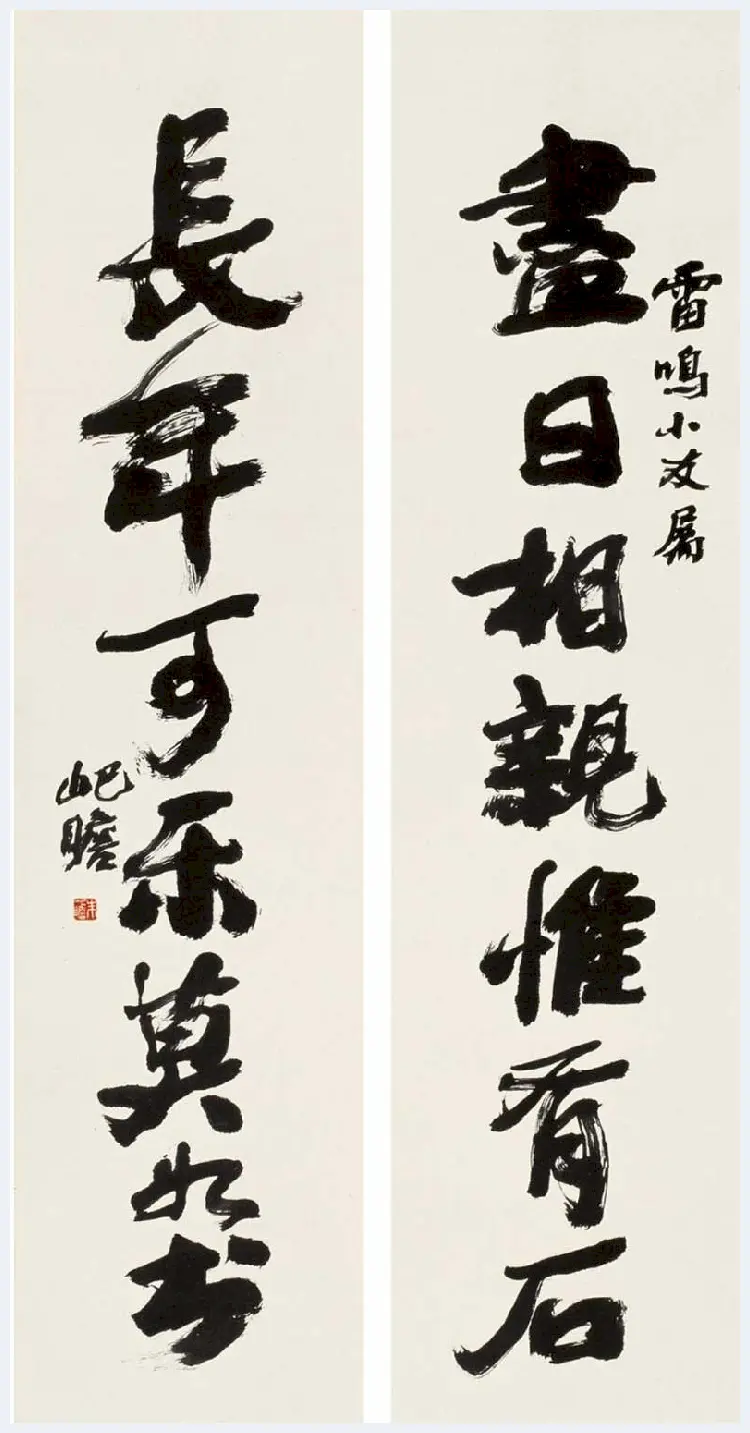 雷鳴小友属
盡日相親惟有石
長年可乐莫如书
屺瞻